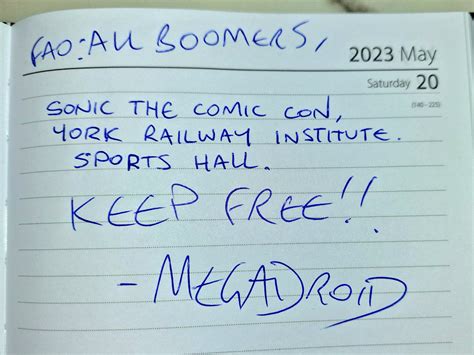 FAO: ALL BOOMERS,
2023 May
Saturday 20
(140 - 225)
SONIC THE COMIC CON,
YORK RAILWAY INSTITUTE.
SPORTS HALL.
KEEP FREE!!
- MEGADROID